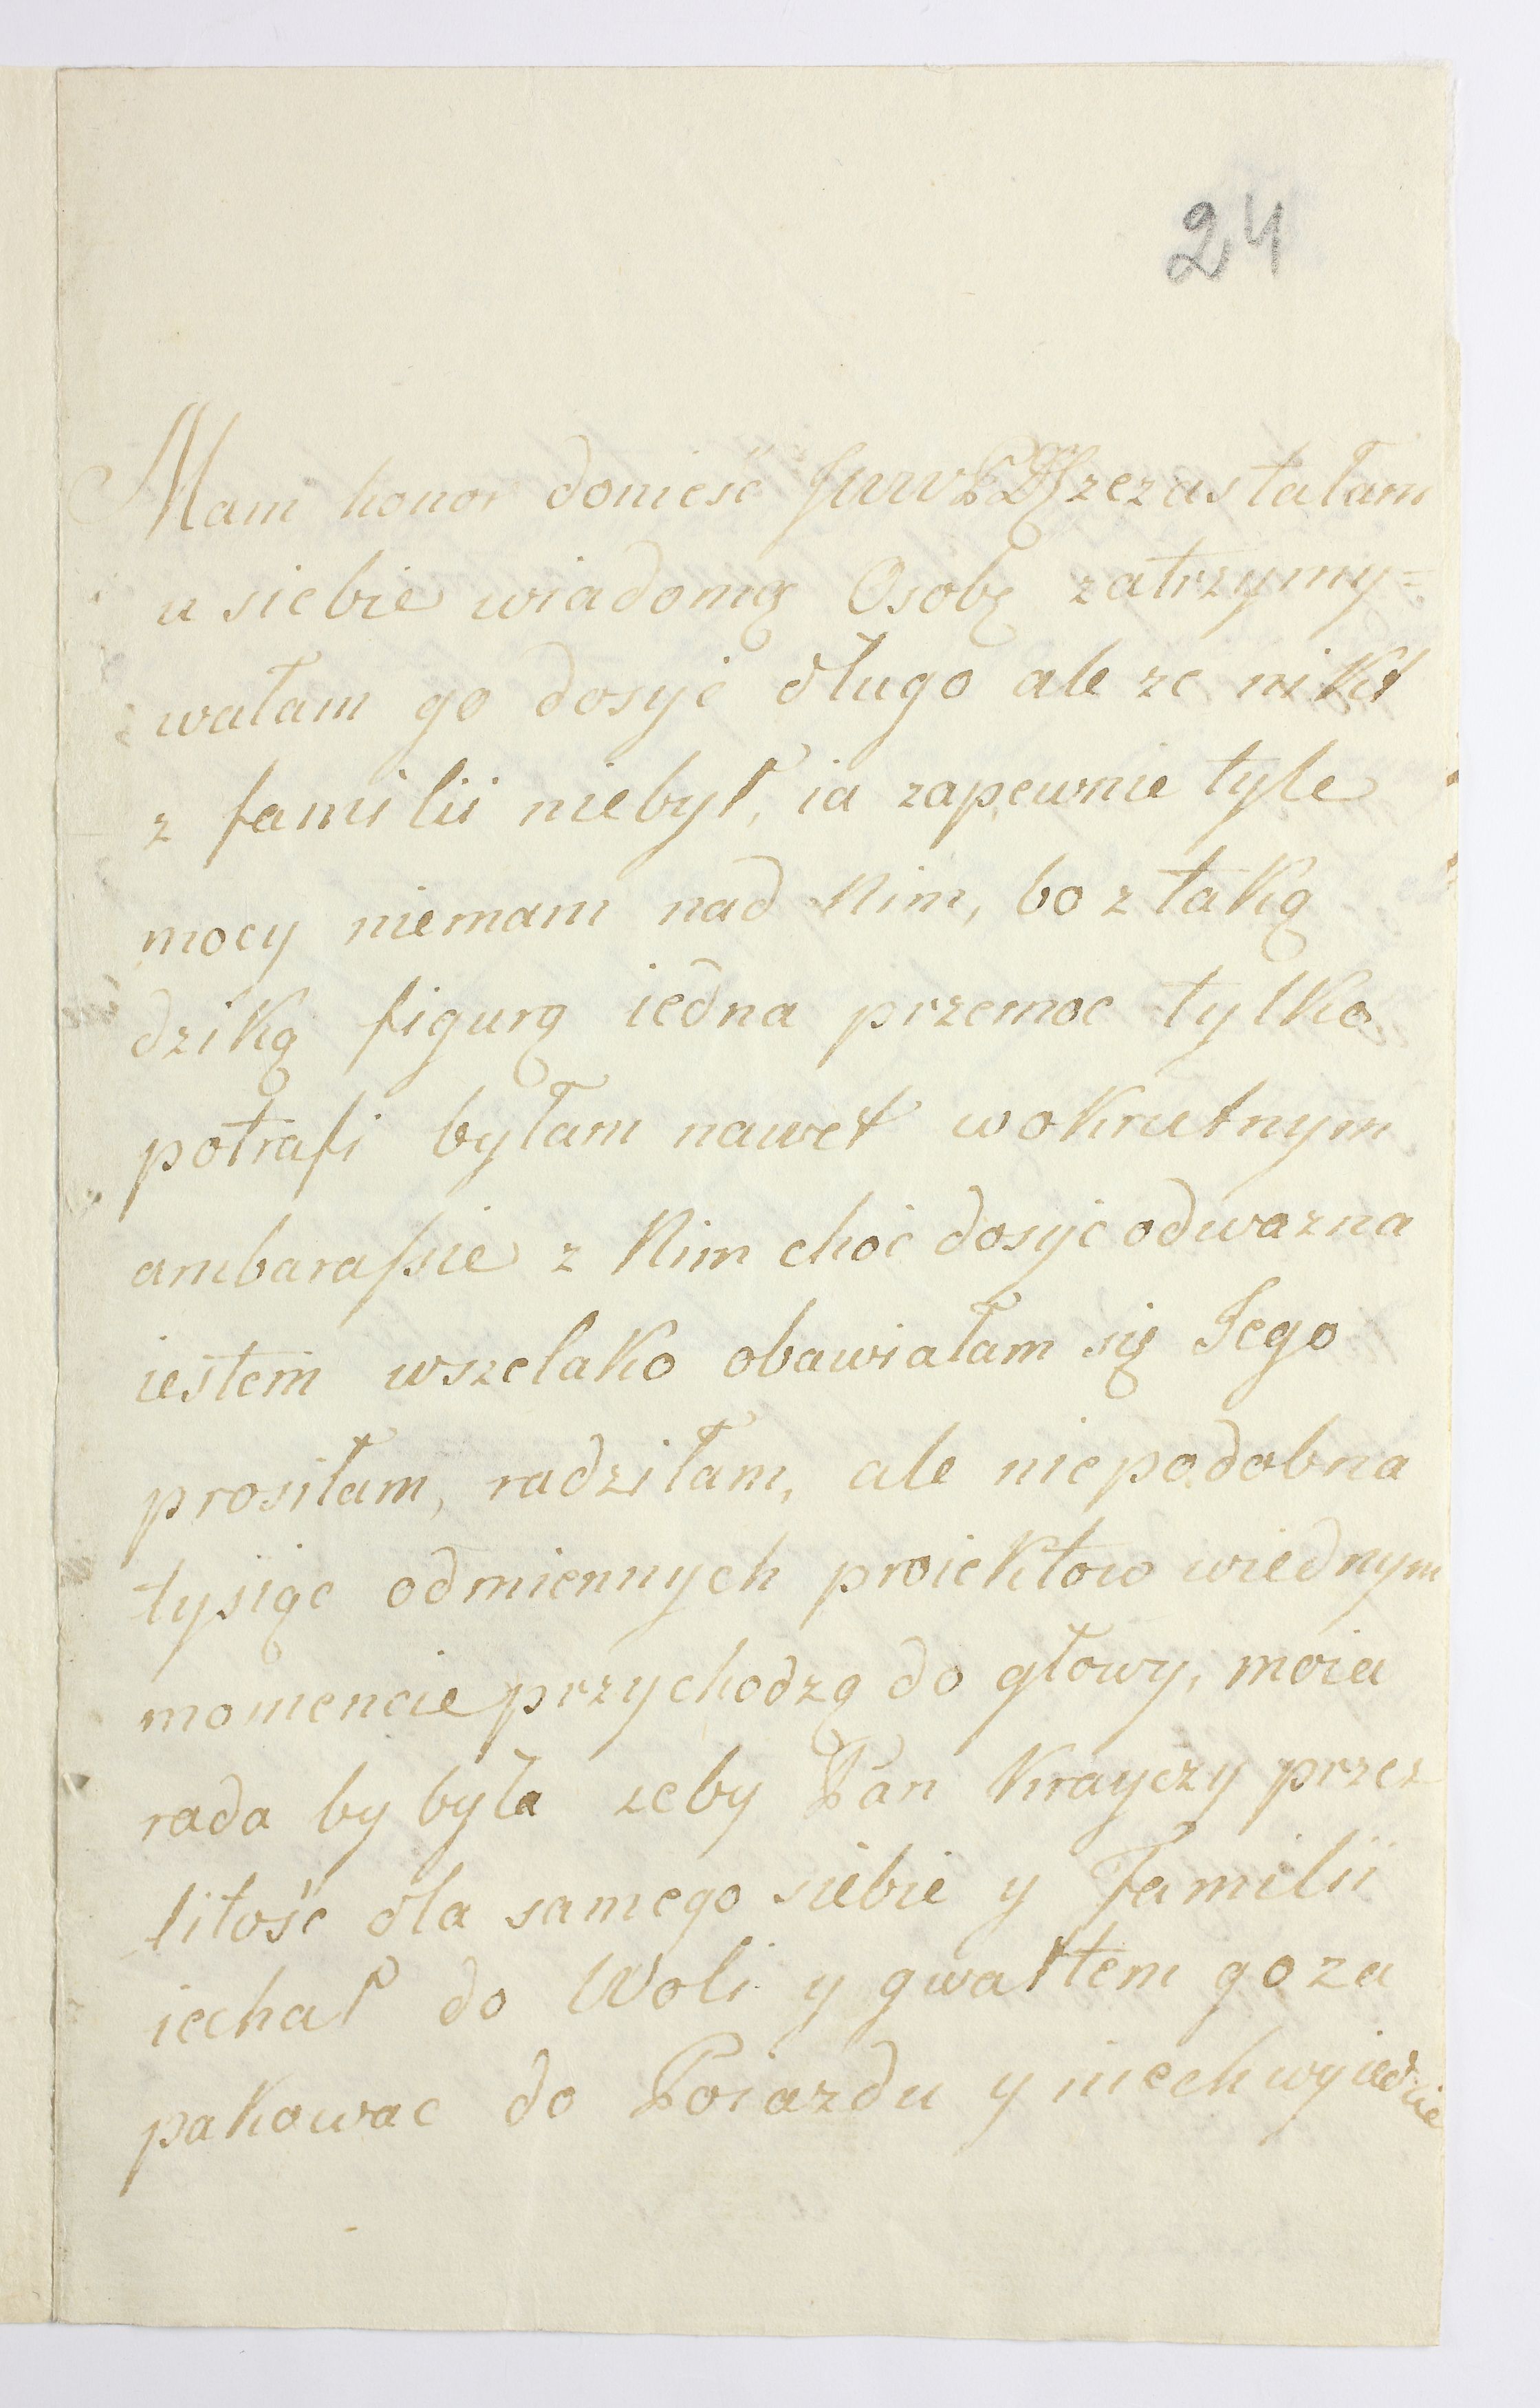 24
Mam honor donieść JWWPD zezastałam
u siebie wiadomą Osobę zatrzymy=
wałam go dosyć długo ale ze nikt
z familii niebył, ia zapewnie tyle
mocy niemam nad Nim, bo z taką
dziką figurą iedna przemoc tylko
potrafi byłam nawet wokrutnym
ambarassie z Nim choć dosyć odwazna
iestem wszelako obawiałam się Jego
prosiłam, radziłam, ale niepodobna
tysiąc odmiennych proiektow wiednym
momencie przychodzą do głowy, moia
rada by była zeby Pan Krayczy przez
litość dla samego siebie y Familii
iechał do Woli y gwałtem go za
pakowac do Poiazdu y niech wyiedzie